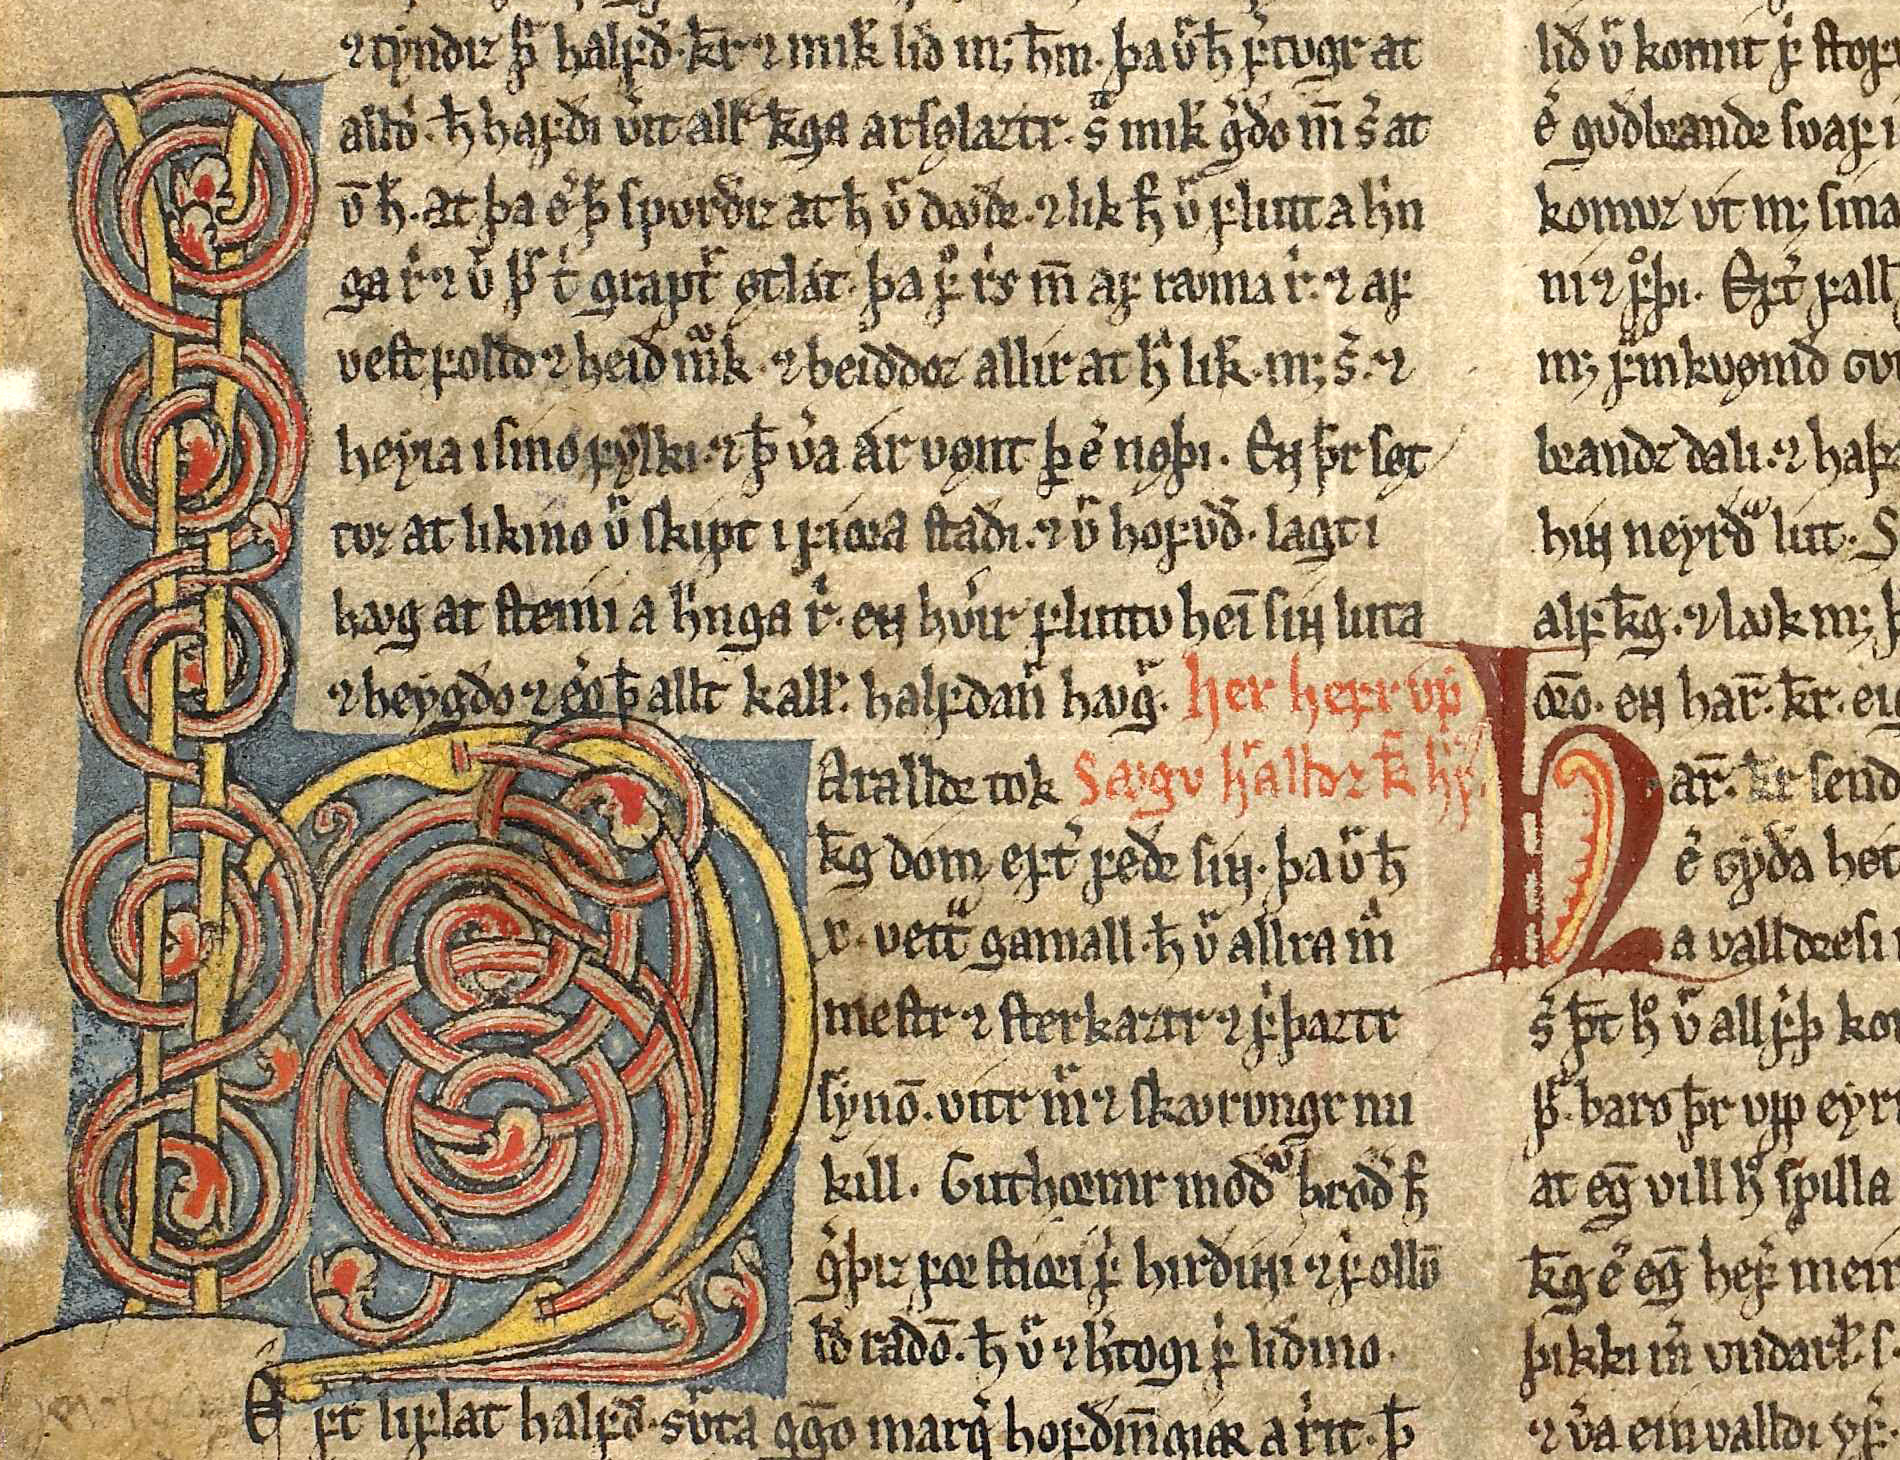 ⁊ tyndiz þͬ halfd̄. kr̄ ⁊ mik̄ lid m; hm̄. þa v͛ h̄ fꝛtvgr at
alld͛. h̄ hafdi v͛it all͛ k̄ga arsǫlaztr. s͛ mik̄ g͛do m̄ s͛ at
v̄ h̄. at þa e͛ þ̄ spurdiz at h̄ v͛ dꜹdꝛ. ⁊ lik h̄ v͛ flutt a h͛n
ga r̍. ⁊ v͛ þͬ t̍ grapt͛ ǫtlát. þa fͦ r̍s m̄ af rꜹma r̍. ⁊ af
vestfolld ⁊ heidmͦk. ⁊ beiddoz allir at hͣ lik. m; s͛. ⁊
heyia i sino fylki. ⁊ þ̄ v͛a ár vǫnt þͬ e͛ nǫþi. En þr̄ sǫt
tuz at likino v͛ skipt i fiora stadi. ⁊ v͛ hofvd̄. lagt i
hꜹg at steini a h͛nga r̍. en hv͛ir fluttv hei̅ sin luta
⁊ heygdo ⁊ e͛o þ̄ allt kall͛. halfdan͛ hꜹg͛.
her hefr vp̄
Arallde tok
Sꜹgv hͣalldz k̄ hͬf.
k̄g dom ept͛ fedꝛ sin. þa v͛ h̄
x. vettͣ gamall. h̄ v͛ allra mͣ
mestr ⁊ sterkaztr ⁊ f̍þaztr
synō. vitr mͬ ⁊ skꜹrungr mi
kill. Guthormr modͮ brod̍ h̄
g͛þiz foꝛstiori f͛ hirdinni ⁊ f͛ ollō
ld radō. h̄ v͛ ⁊ h͛togi f͛ lidino.
Ept̍ liflat halfd̄. s͛vta gg̅o marg̍ hofdin̄giar a r̍it. þ̄
lid v͛ komit f͛ stof
e͛ gvdbrandꝛ svaf i
komuz vt m; sina
ni ⁊ fͦþi. Ept͛ fall
m; f͛inkvǫmd Gu
brandz dali. ⁊ haþ
hin neyrdͣ lut. S
alf k̄g. ⁊ lꜹk m; þ
oro. en har͛. kr̄. ei
har͛. kr̄ send
e͛ Gyda het
a valldresi
s͛ þt̄ hͦ v͛ all f̍þ ko
þͬ. baro þr̄ vpp eyr
at eg̅ vill hͦ spilla
k̄g e͛ eg̅ hef͛ meir
þikki m͛ undarl̄. s.
⁊ v͛a einvalldi yf͛.